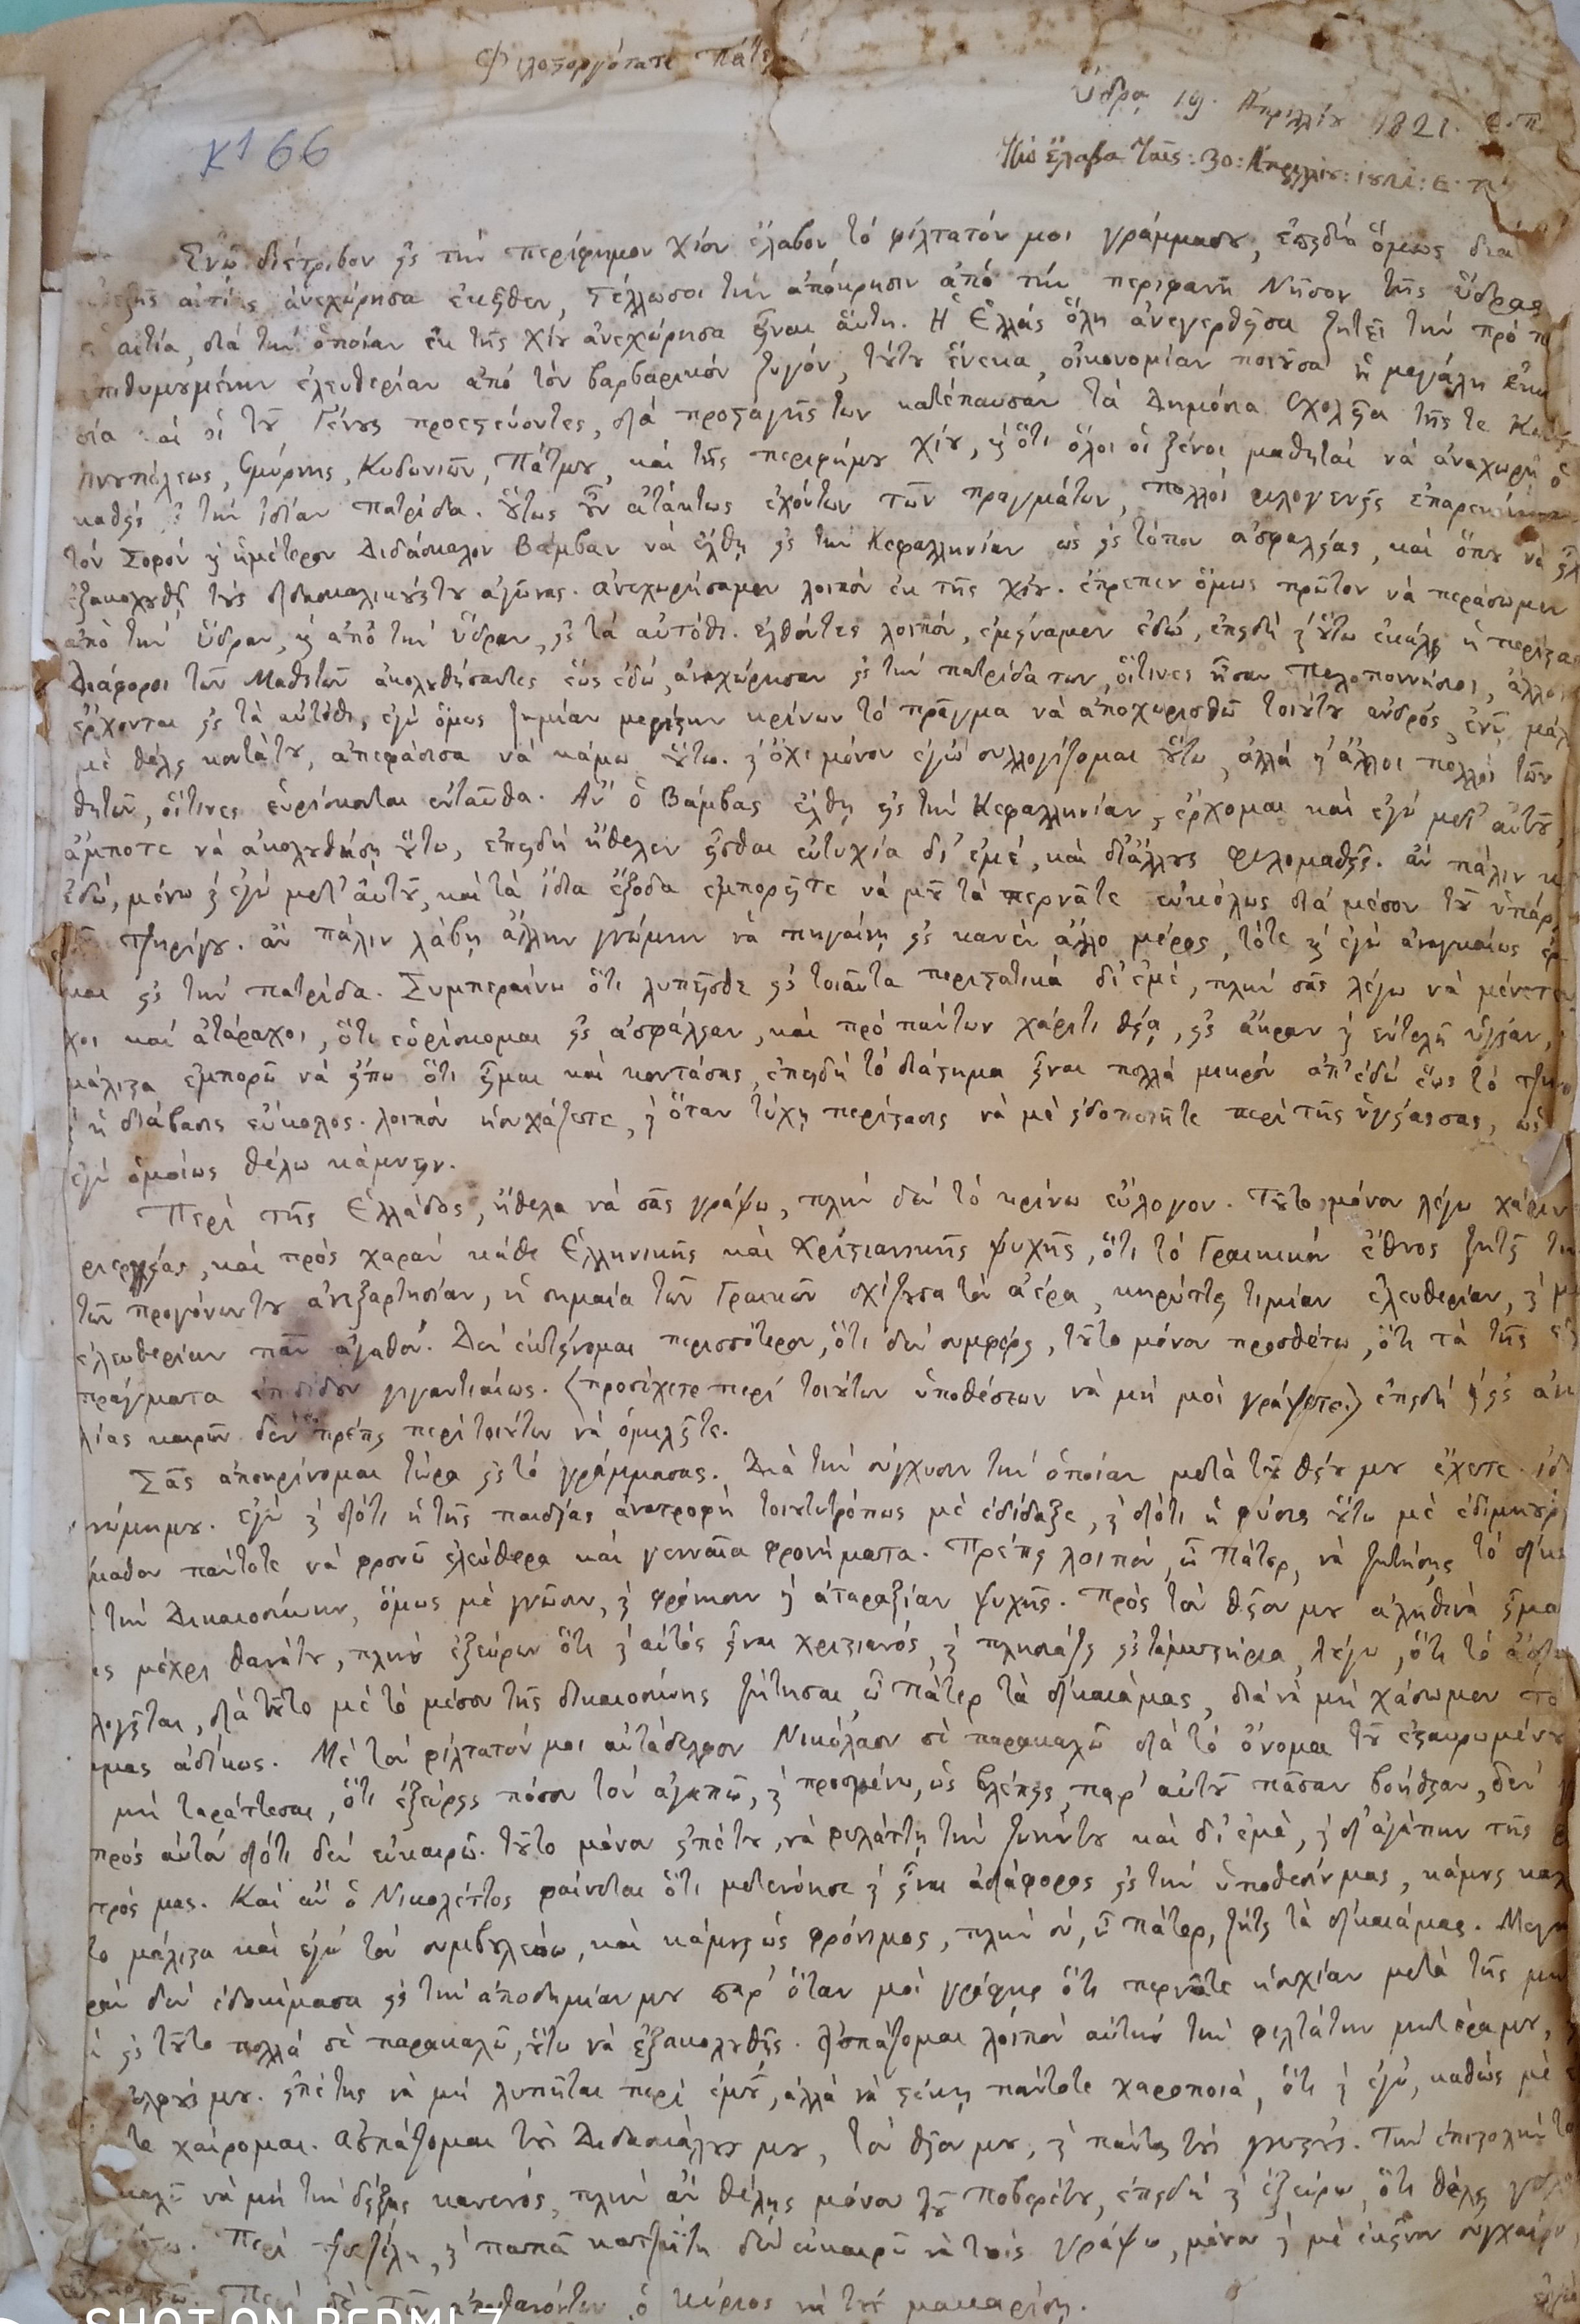 Φιλοστοργότατε Πάτερ
Ὕδρα 19. Ἀπριλλίου 1821. Ε. π.
τὴν ἔλαβα ταῖς: 30: Ἀπριλλίου: 1821: Ε. π.
Κ1 66
Ἐνῷ διέτριβον εἰς τὴν περίφημον Χίον ἔλαβον τὸ φίλτατόν μοι γράμμασου, ἐπειδὴ ὅμως διὰ
αἰτίας ἀνεχώρησα ἐκεῖθεν, στέλλωσοι τὴν ἀπόκρησιν ἀπὸ τὴν περιφανῆ Νῆσον τῆς ὕδρας
αἰτία, διὰ τὴν ὁποίαν ἐκ τῆς Χίου ἀνεχώρησα εἶναι αὕτη. Ἡ Ἑλλάς ὅλη ἀνεγερθεῖσα ζητεῖ τὴν πρὸ
ἐπιθυμουμένην ἐλευθερίαν ἀπὸ τὸν βαρβαρικὸν ζυγόν, τούτου ἕνεκα, οἰκονομίαν ποιοῦσα ἡ μεγάλη
σία καὶ οἱ τοῦ Γένους προεστεύοντες, διὰ προσταγῆς των κατέπαυσαν τὰ Δημόσια Σχολεῖα τῆς τε
πόλεως, Σμύρνης, Κυδωνιῶν, Πάτμου, καὶ τῆς περιφήμου Χίου, καὶ ὅτι ὅλοι οἱ ξένοι μαθηταὶ νὰ ἀναχωρῇ ὁ
καθεὶς εἰς τὴν ἰδίαν πατρίδα. οὕτως οὖν ἀτάκτως ἐχόντων τῶν πραγμάτων, πολλοὶ φιλογενεῖς
τὸν Σοφὸν καὶ ἡμέτερον Διδάσκαλον Βάμβαν νὰ ἔλθῃ εἰς τὴν Κεφαλληνίαν ὡς εἰς τόπον ἀσφαλείας, καὶ ὅπου νὰ
ἐξακολουθῇ τοὺς διδασκαλικούςτου ἀγῶνας. ἀνεχωρήσαμεν λοιπὸν ἐκ τῆς Χίου. ἔπρεπεν ὅμως πρῶτον νὰ περάσωμεν
ἀπὸ τὴν Ὕδραν, καὶ ἀπὸ τὴν ὕδραν, εἰς τὰ αὐτόθι. ἐλθόντες λοιπόν, ἐμείναμεν ἐδώ, ἐπειδὴ καὶ οὕτω ἐκάλει ἡ
Διάφοροι τῶν Μαθητῶν ἀκολουθήσαντες ἕως ἐδώ, ἀνεχώρησαν εἰς τὴν πατρίδα των, οἵτινες ἦσαν Πελοποννήσιοι, ἄλλοι
ἔρχονται εἰς τὰ αὐτόθι, ἐγὼ ὅμως ζημίαν μεγίστην κρίνων τὸ πρᾶγμα νὰ ἀποχωρισθῶ τοιούτου ἀνδρός, ἐνῷ
μὲ θέλει κοντάτου, ἀπεφάσισα νὰ κάμω οὕτω. καὶ ὄχι μόνον ἐγὼ συλλογίζομαι οὕτω, ἀλλὰ καὶ ἄλλοι πολλοὶ τῶν
θητῶν, οἵτινες εὑρίσκονται ἐνταῦθα. Ἂν ὁ Βάμβας ἔλθῃ εἰς τὴν Κεφαλληνίαν, ἔρχομαι καὶ ἐγὼ μετ' αὐτοῦ,
ἄμποτε νὰ ἀκολουθήσῃ οὕτω, ἐπειδὴ ἤθελεν εἶσθαι εὐτυχία δι' ἐμέ, καὶ δι' ἄλλους φιλομαθεῖς. ἂν πάλιν
ἐδώ, μένω καὶ ἐγὼ μετ' αὐτοῦ, καὶ τὰ ἴδια ἔξοδα ἐμπορεῖτε νὰ μοῦ τὰ περνᾶτε εὐκόλως διὰ μέσον τοῦ
Τζηρίγου. ἂν πάλιν λάβῃ ἄλλην γνώμην νὰ πηγαίνῃ εἰς κανὲν ἄλλο μέρος, τότε καὶ ἐγὼ ἀναγκαίως
μαι εἰς τὴν πατρίδα. Συμπεραίνω ὅτι λυπεῖσθε εἰς τοιαῦτα περιστατικὰ δι' ἐμέ, πλὴν σᾶς λέγω νὰ μένετε
χοι καὶ ἀτάραχοι, ὅτι εὑρίσκομαι εἰς ἀσφάλειαν, καὶ πρὸ πάντων χάριτι θείᾳ, εἰς ἄκραν καὶ ἐντελῆ ὑγείαν,
μάλιστα ἐμπορῶ νὰ εἴπω ὅτι εἶμαι καὶ κοντάσας, ἐπειδὴ τὸ διάστημα εἶναι πολλὰ μικρὸν ἀπ' ἐδώ ἕως τὸ
ἡ διάβασις εὔκολος. λοιπὸν ἡσυχάζετε, καὶ ὅταν τύχῃ περίστασις νὰ μὲ εἰδοποιῆτε περὶ τῆς ὑγείαςσας, ὡς
ἐγὼ ὁμοίως θέλω κάμνειν.
Περὶ τῆς Ἑλλάδος, ἤθελα νὰ σᾶς γράψω, πλὴν δὲν τὸ κρίνω εὔλογον. Τοῦτο μόνον λέγω χάριν
ριεργείας, καὶ πρὸς χαρὰν κάθε Ἑλληνικῆς καὶ Χριστιανικῆς ψυχῆς, ὅτι τὸ Γραικικὸν ἔθνος ζητεῖ
τῶν προγόνωντου ἀνεξαρτησίαν, ἡ σημαία τῶν Γραικῶν σχίζουσα τὸν ἀέρα, κηρύττει τιμίαν ἐλευθερίαν, καὶ
ἐλευθερίαν πᾶν ἀγαθόν. Δὲν ἐκτείνομαι περισσότερον, ὅτι δὲν συμφέρει, τοῦτο μόνον προσθέτω, ὅτι τὰ τῆς
πράγματα ἐπιδίδουν γιγαντιαίως. (προσέχετε περὶ τοιούτων ὑποθέσεων νὰ μή μοι γράψετε.) ἐπειδὴ καὶ εἰς
λίας καιρὸν δὲν πρέπει περὶ τοιούτων νὰ ὁμιλῆτε.
Σᾶς ἀποκρίνομαι τώρα εἰς τὸ γράμμασας. Διὰ τὴν σύγχυσιν τὴν ὁποίαν μετὰ τοῦ θείου μου ἔχετε
γνώμημου. ἐγὼ καὶ διότι ἡ τῆς παιδείας ἀνατροφὴ τοιουτοτρόπως μὲ ἐδίδαξε, καὶ διότι ἡ φύσις οὕτω μὲ
ἔμαθον πάντοτε νὰ φρονῶ ἐλεύθερα καὶ γενναῖα φρονήματα. Πρέπει λοιπόν, ὦ Πάτερ, νὰ ζητήσῃς τὸ
τὴν Δικαιοσύνην, ὅμως μὲ γνῶσιν, καὶ φρόνησιν καὶ ἀταραξίαν ψυχῆς. Πρὸς τὸν θεῖον μου ἀληθινὰ
μέχρι θανάτου, πλὴν ἐξεύρων ὅτι καὶ αὐτὸς εἶναι χριστιανός, καὶ πλησιάζει εἰς τὰ μυστήρια, λέγω, ὅτι τὸ
λογεῖται, διὰ τοῦτο μὲ τὸ μέσον τῆς δικαιοσύνης ζήτησαι ὦ Πάτερ τὰ δίκαιάμας, διὰ νὰ μὴ χάσωμεν
μας ἀδίκως. Μὲ τὸν φίλτατόν μοι αὐτάδελφον Νικόλαον σὲ παρακαλῶ διὰ τὸ ὄνομα τοῦ ἐσταυρωμένου
μὴ ταράττεσαι, ὅτι ἐξεύρεις πόσον τὸν ἀγαπῶ, καὶ προσμένω, ὡς βλέπεις, παρ' αὐτοῦ πᾶσαν βοήθειαν, δὲν
πρὸς αὐτὸν διότι δὲν εὐκαιρῶ. τοῦτο μόνον εἰπέτου, νὰ φυλάττῃ τὴν ζωήντου καὶ δι' ἐμέ, καὶ δι' ἀγάπην τῆς
τρός μας. Καὶ ἂν ὁ Νικολέττος φαίνεται ὅτι μετενόησε καὶ εἶναι ἀδιάφορος εἰς τὴν ὑπόθεσίν μας, κάμνει
το μάλιστα καὶ ἐγὼ τὸν συμβουλεύω, καὶ κάμνει ὡς φρόνιμος, πλὴν σύ, ὦ Πάτερ, ζήτει τὰ δίκαιάμας.
ρὰν δὲν ἐδοκίμασα εἰς τὴν ἀποδημίαν μου παρ' ὅταν μοὶ γράφῃς ὅτι περνᾶτε ἡσυχίαν μετὰ τῆς
εἰς τοῦτο πολλὰ σὲ παρακαλῶ, οὕτω νὰ ἐξακολουθῇς. Ἀσπάζομαι λοιπὸν αὐτὴν τὴν φιλτάτην μητέραμου,
μου. εἰπέ της νὰ μὴ λυπῆται περὶ ἐμοῦ, ἀλλὰ νὰ στέκῃ πάντοτε χαροποιά, ὅτι καὶ ἐγώ, καθὼς μὲ
χαίρομαι. Ἀσπάζομαι τοὺς Διδασκάλους μου, τὸν θεῖον μου, καὶ πάντας τοὺς γνωστούς. Τὴν ἐπιστολὴν
νὰ μὴ τὴν δείξῃς κανενός, πλὴν ἂν θέλῃς μόνον τοῦ Ποβερέτου, ἐπειδὴ καὶ ἐξεύρω, ὅτι θέλει
Περὶ καὶ παπᾶ δὲν εὐκαιρῶ νὰ τοῖς γράψω, μόνον καὶ μὲ ἐκεῖνον
Περὶ δὲ τῶν ἀποθανόντων ὁ Κύριος νὰ τοὺς μακαρίσῃ.
SHOT ON REDMI 7